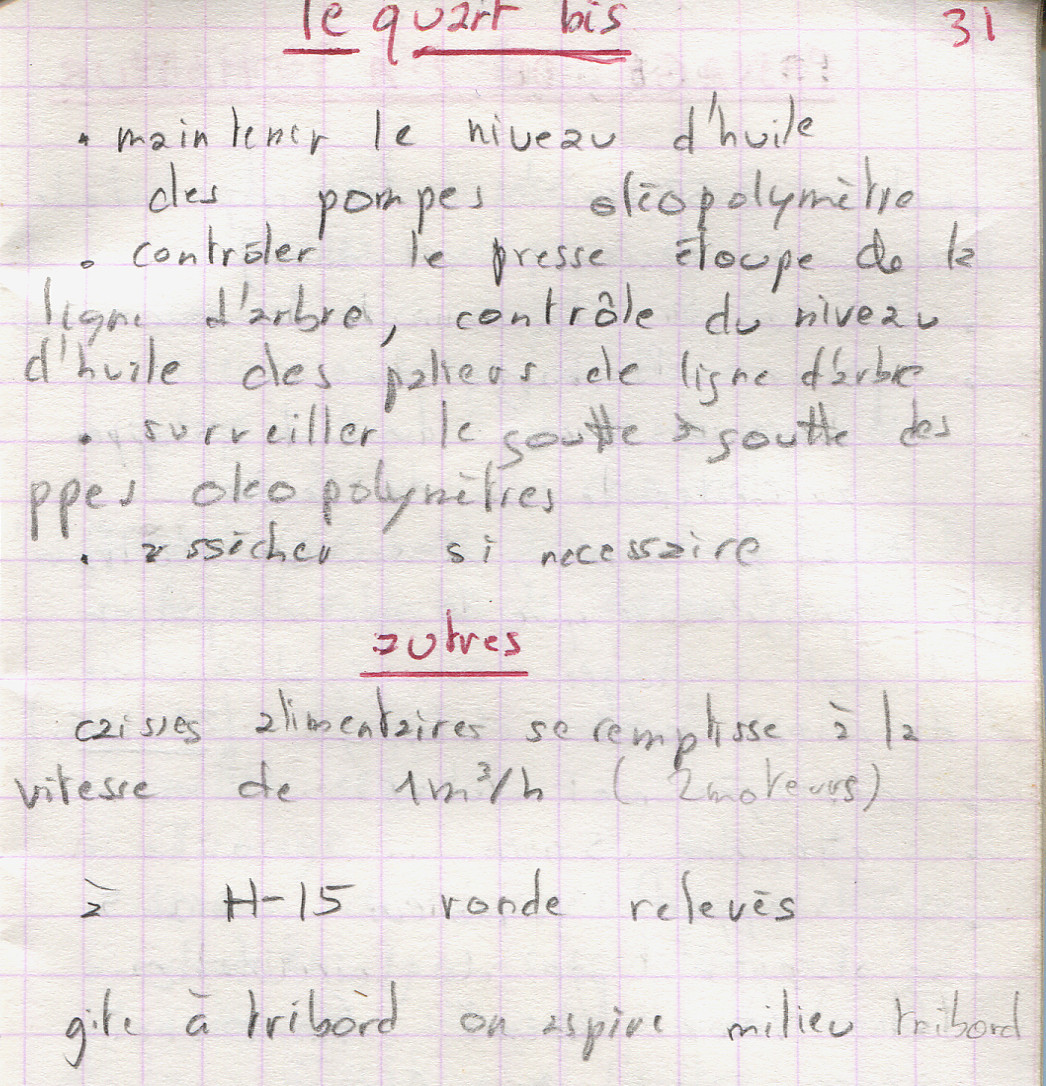 le quart bis 31
• maintenir le niveau d'huile
des pompes oléopolymètre
• contrôler le presse étoupe de la
ligne d'arbre, contrôle du niveau
d'huile des paliers de ligne d'arbre
• surveiller le goutte à goutte des
ppes oleopolymètres
• assécher si necessaire
autres
caisses alimentaires se remplisse à la
vitesse de 1m³/h (2 moteurs)
à H-15 ronde relevés
gite à tribord on aspire milieu tribord